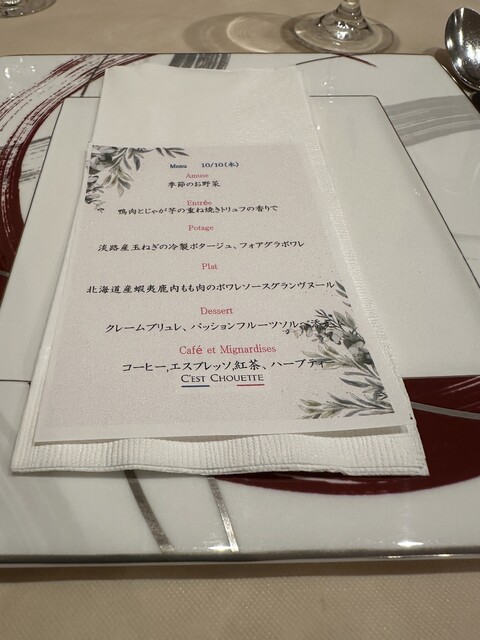 Menu 10/10(木)
Amuse
季節のお野菜
Entrée
鴨肉とじゃが芋の重ね焼きトリュフの香りで
Potage
淡路産玉ねぎの冷製ポタージュ、フォアグラポワレ
Plat
北海道産蝦夷鹿内もも肉のポワレソースグランヴヌール
Dessert
クレームブリュレ、パッションフルーツソルベ添え
Café et Mignardises
コーヒー,エスプレッソ,紅茶、ハーブティ
C'EST CHOUETTE